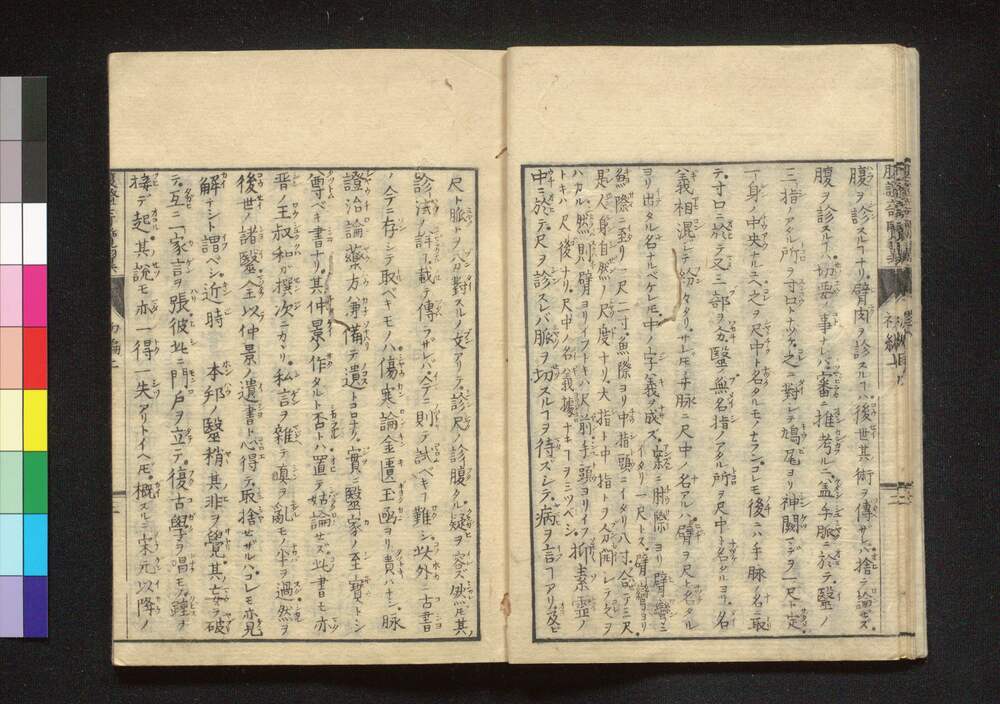 腹ヲ診スルヿナリ臂肉ヲ診スルハ後世其術ヲ傳ザレバ捨テ論ゼズ
腹ヲ診スルハ切要ノ事ナレバ審ニ推考ルニ蓋手脈ニ於テ醫ノ
三指ノアタル所ヲ寸口トナヅケ之ニ對シテ鳩尾ヨリ神闕マデヲ一尺ト定
一身ノ中央ナルユヘ之ヲ尺中ト名タルモノナランコレモ後ニハ手脈ノ名ニ取
テ寸口ニ於テ又三部ヲ分醫ノ無名指ノアタル所ヲ尺中ト名タルヨリ名
義相混シテ紛タリサレ𪜈手脈ニ尺中ノ名アルハ臂ヲ尺ト名タル
ヨリ出タル名ナルベケレ𪜈中ノ字義ヲ成ズ案ニ肘際ヨリ臂臠ニ
魚際ニ至リ一尺二寸魚際ヨリ中指頭ニイタリ八寸合テ二尺
是人身自然ノ尺度ナリ大指ト中指トヲ分開シテ尺ヲ
ハカル然則臂ヨリイフトキハ尺前手頭ヨリイフ抑素霊ノ
トキハ尺後ナリ尺中ノ名義據ナキヿヲミツベシ
中ニ於テ尺ヲ診スレバ脈ヲ切スルヿヲ待ズシテ病ヲ言ヿアリ及ビ
尺ト脈トヲ分對スルノ文アリテ診尺ノ診腹タル疑ヲ容ズ然𪜈其
診法ノ詳ヿ載テ傳ラザレバ今ニ則テ試ベキヿ難シ此外古書
ノ今ニ存シテ取ベキモノハ傷寒論金匱玉函ヨリ貴ハナシ脈
證治論藥方兼備テ遺トコロナク實ニ醫家ノ至寶トシ
尊ベキ書ナリ其仲景ノ作タルト否トハ置テ姑論セズ此書モ亦
晋ノ王叔和ガ撰次ニカヽリ私言ヲ雜テ真ヲ亂モノ半ヲ過然ヲ
後世ノ諸醫全以仲景ノ遺書ト心得テ取捨セザルハコレモ亦見
解ナシト謂ベシ近時 本邦ノ醫稍其非ヲ覺其妄ヲ破
テ互ニ一家言ヲ張彼此ニ門戸ヲ立テ復古學ヲ唱モノ踵ヲ
接デ起其説モ亦一得一失アリトイヘ𪜈概スルニ宋元以降ノ